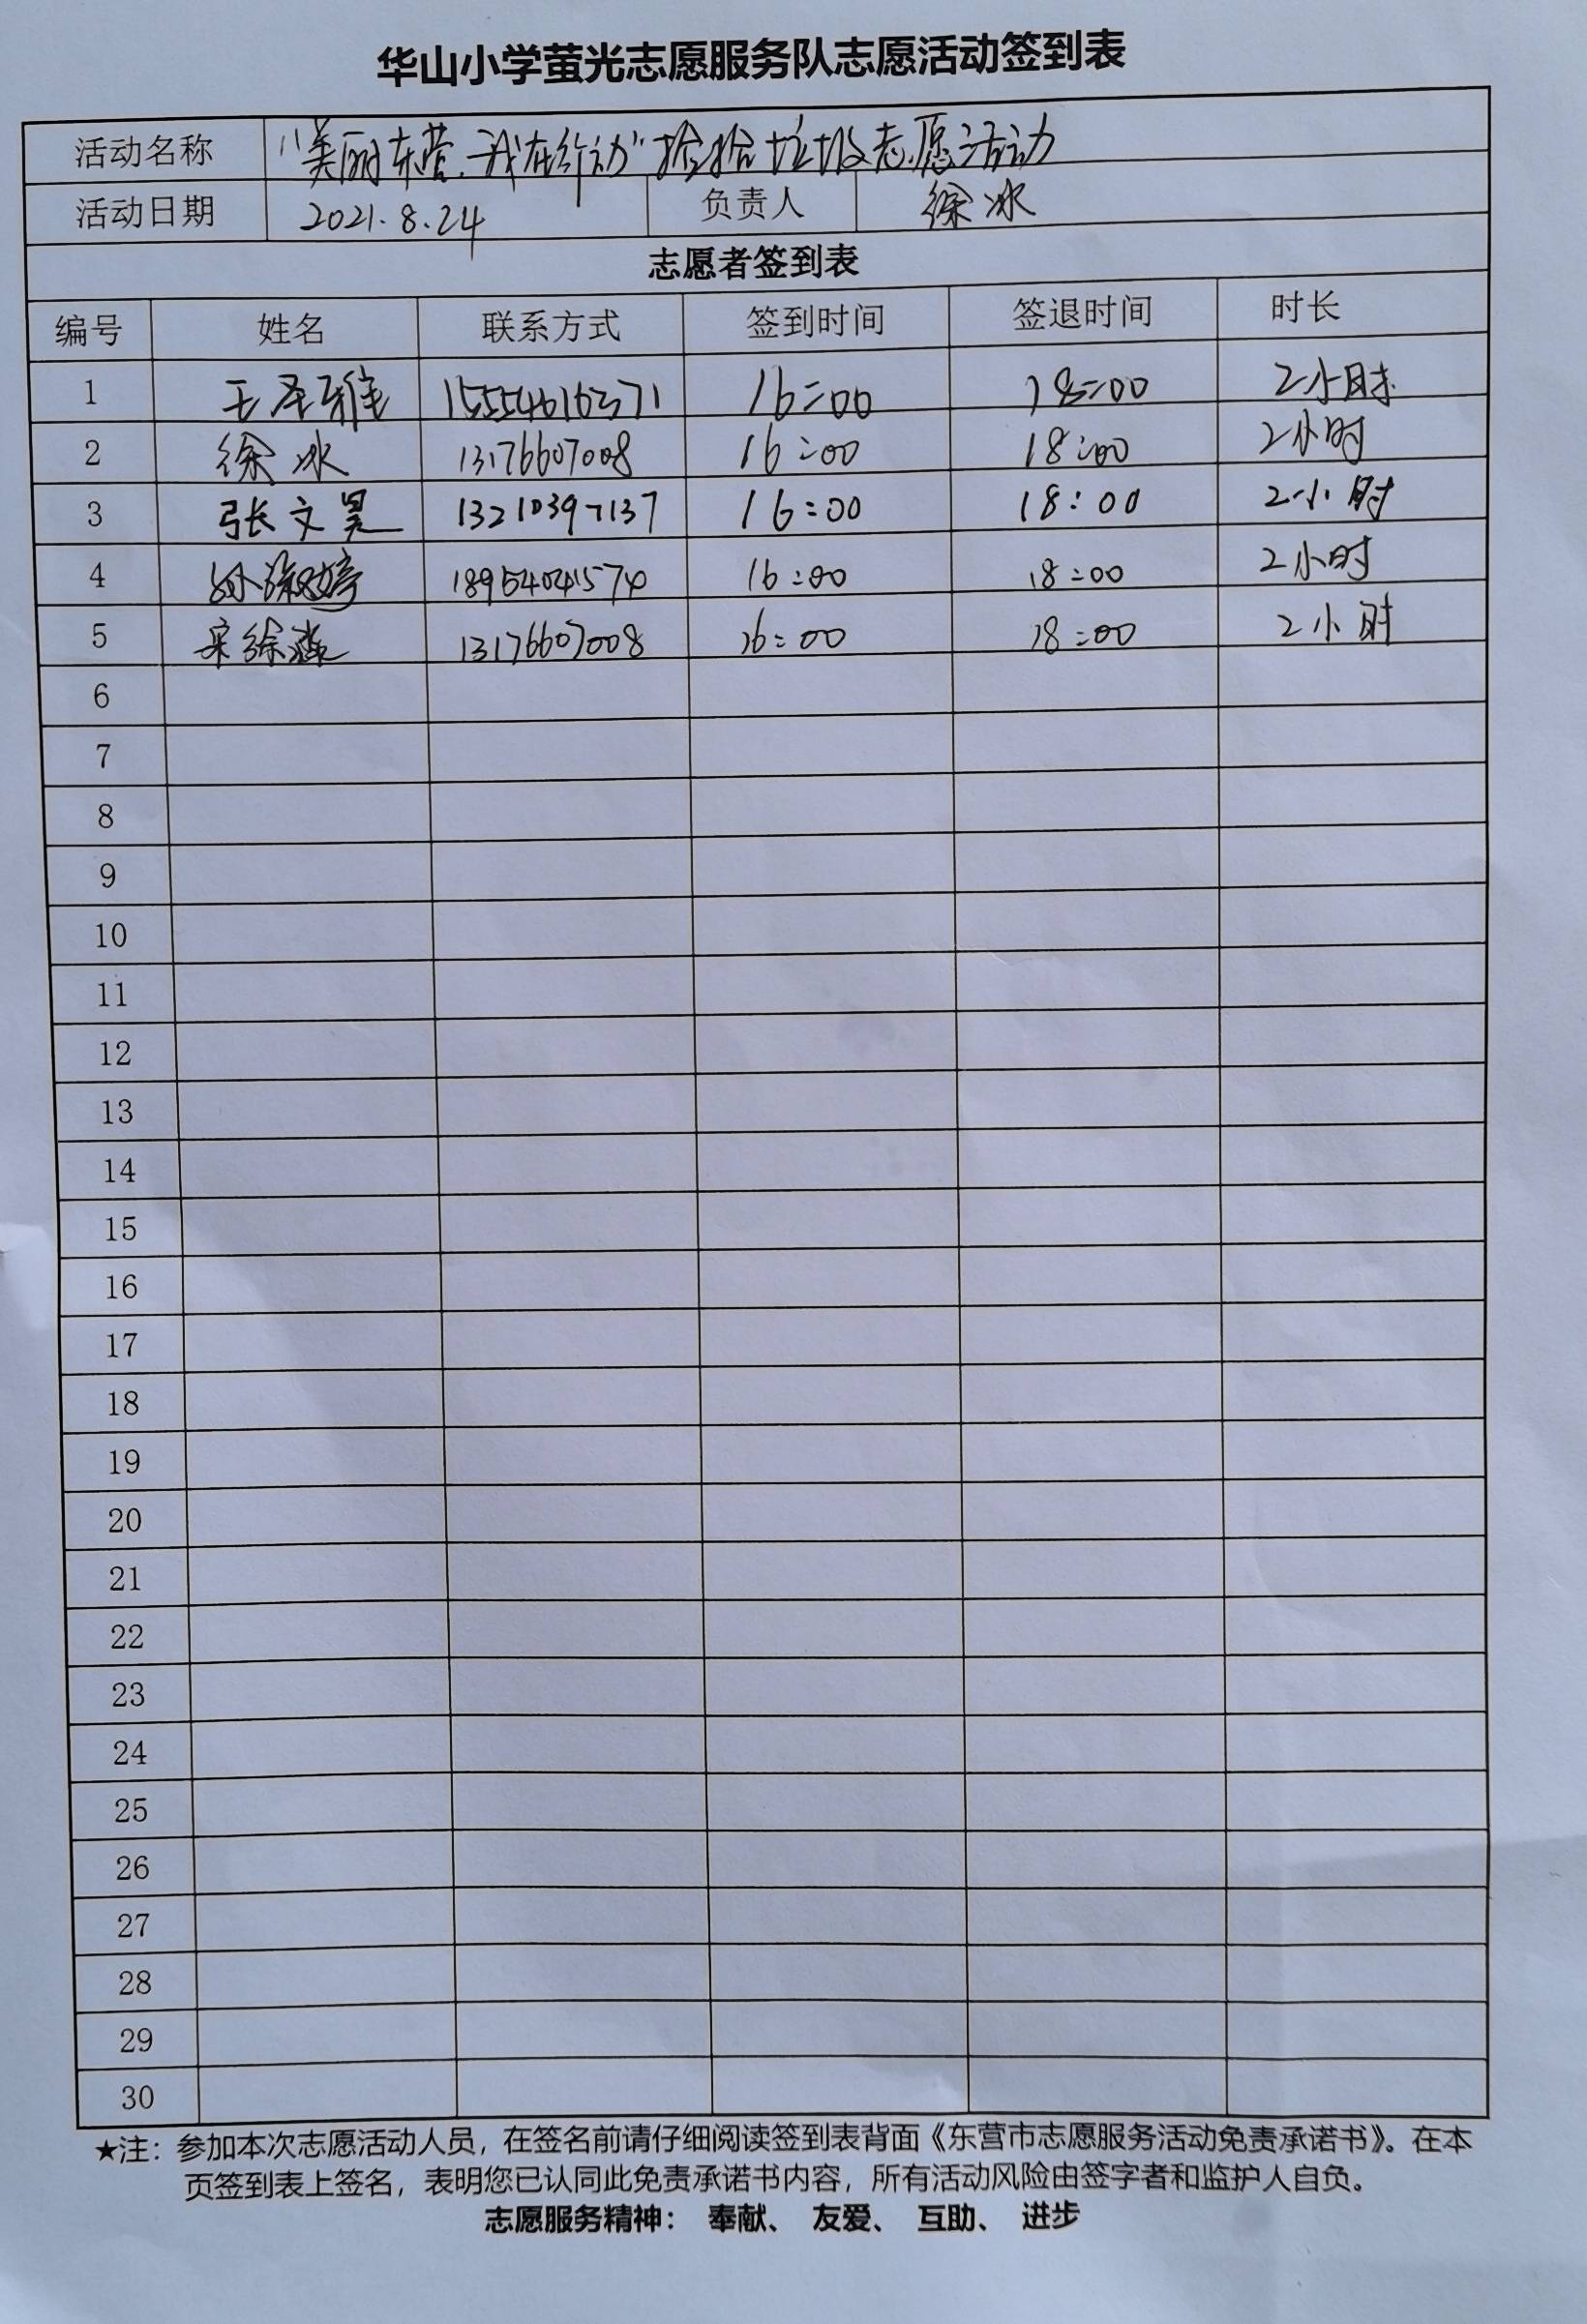 华山小学萤光志愿服务队志愿活动签到表
活动名称 “美丽东营.我在行动”捡拾垃圾志愿活动
活动日期 2021.8.24 负责人 徐冰
志愿者签到表
编号 姓名 联系方式 签到时间 签退时间 时长
1 王泽雅 16:00 18:00 2小时
2 徐冰 13176607008 16:00 18:00 2小时
3 张文昊 13210397137 16:00 18:00 2小时
4 16:00 18:00 2小时
5 宋徐 13176607008 16:00 18:00 2小时
6
7
8
9
10
11
12
13
14
15
16
17
18
19
20
21
22
23
24
25
26
27
28
29
30
★注：参加本次志愿活动人员，在签名前请仔细阅读签到表背面《东营市志愿服务活动免责承诺书》。在本
页签到表上签名，表明您已认同此免责承诺书内容，所有活动风险由签字者和监护人自负。
志愿服务精神： 奉献、 友爱、 互助、 进步